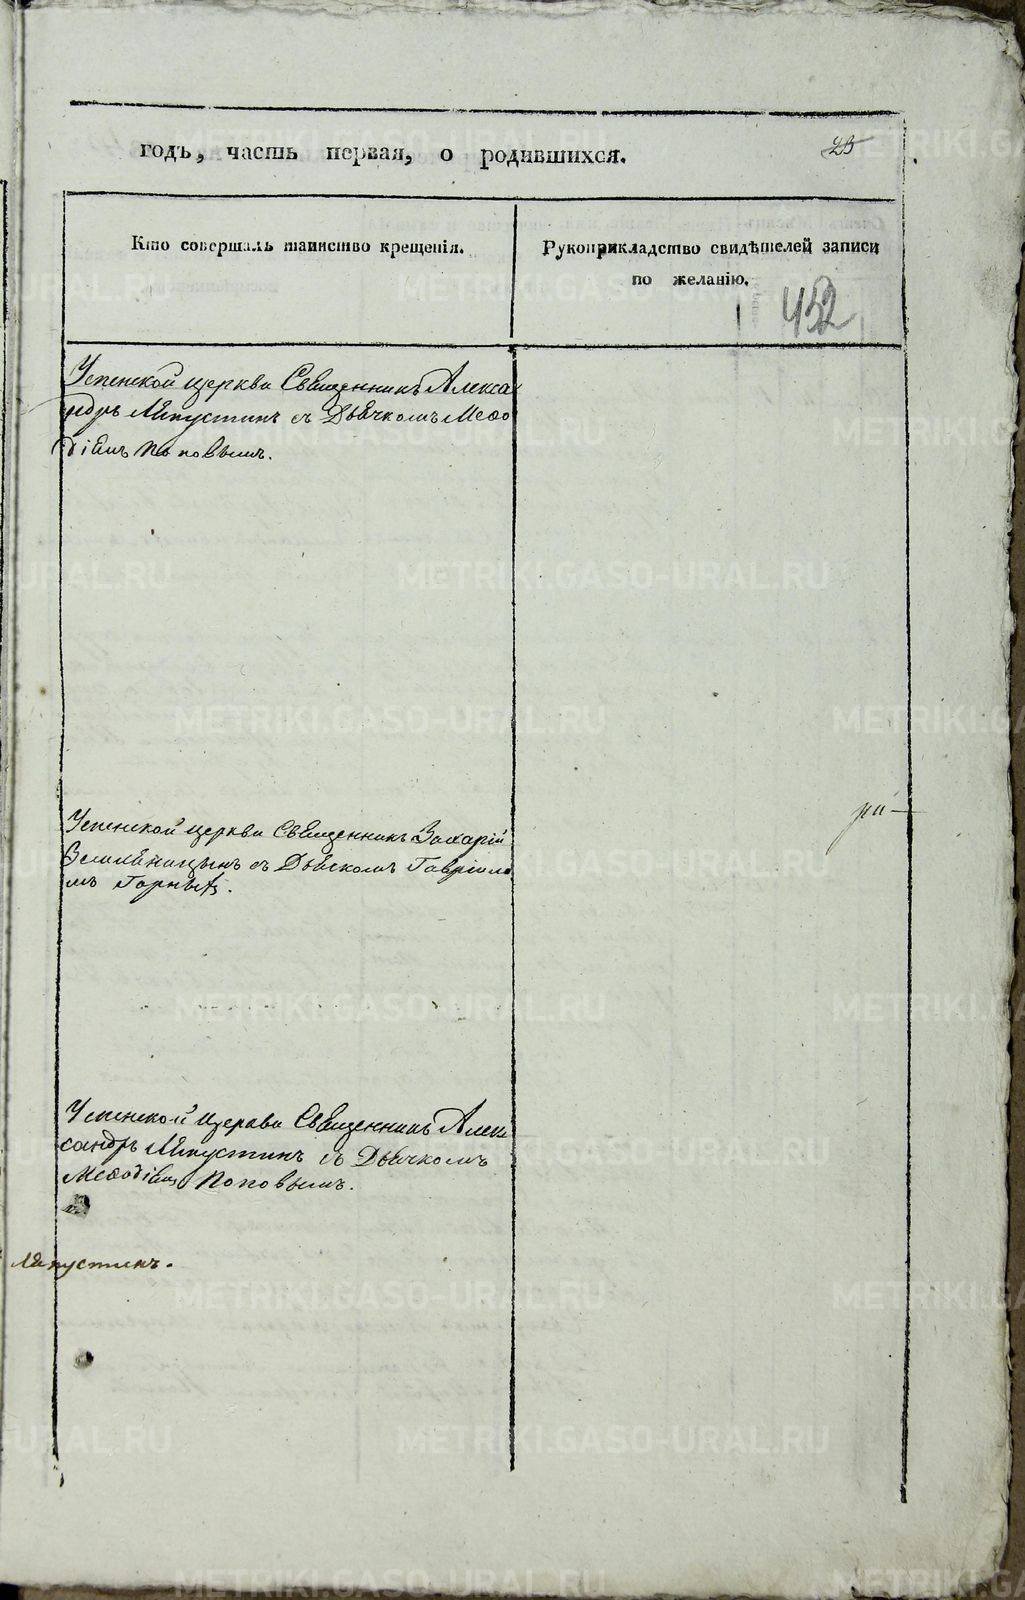 годъ, часть первая, о родившихся.
25
Кто совершалъ таинство крещенія.
Рукоприкладство свидѣтелей записи
по желанію.
452
Успенской церкви Священникъ Алекса
ндръ Ляпустинъ съ Дьячкомъ Меѳо
діемъ Поповымъ.
Успенской церкви Священникъ Захарій
съ Дьячкомъ Гавріило
мъ
Успенской церкви Священникъ Алек
сандръ Ляпустинъ съ Дьячкомъ
Меѳодіемъ Поповымъ.
Ляпустинъ.
METRIKI.GASO-URAL.RU